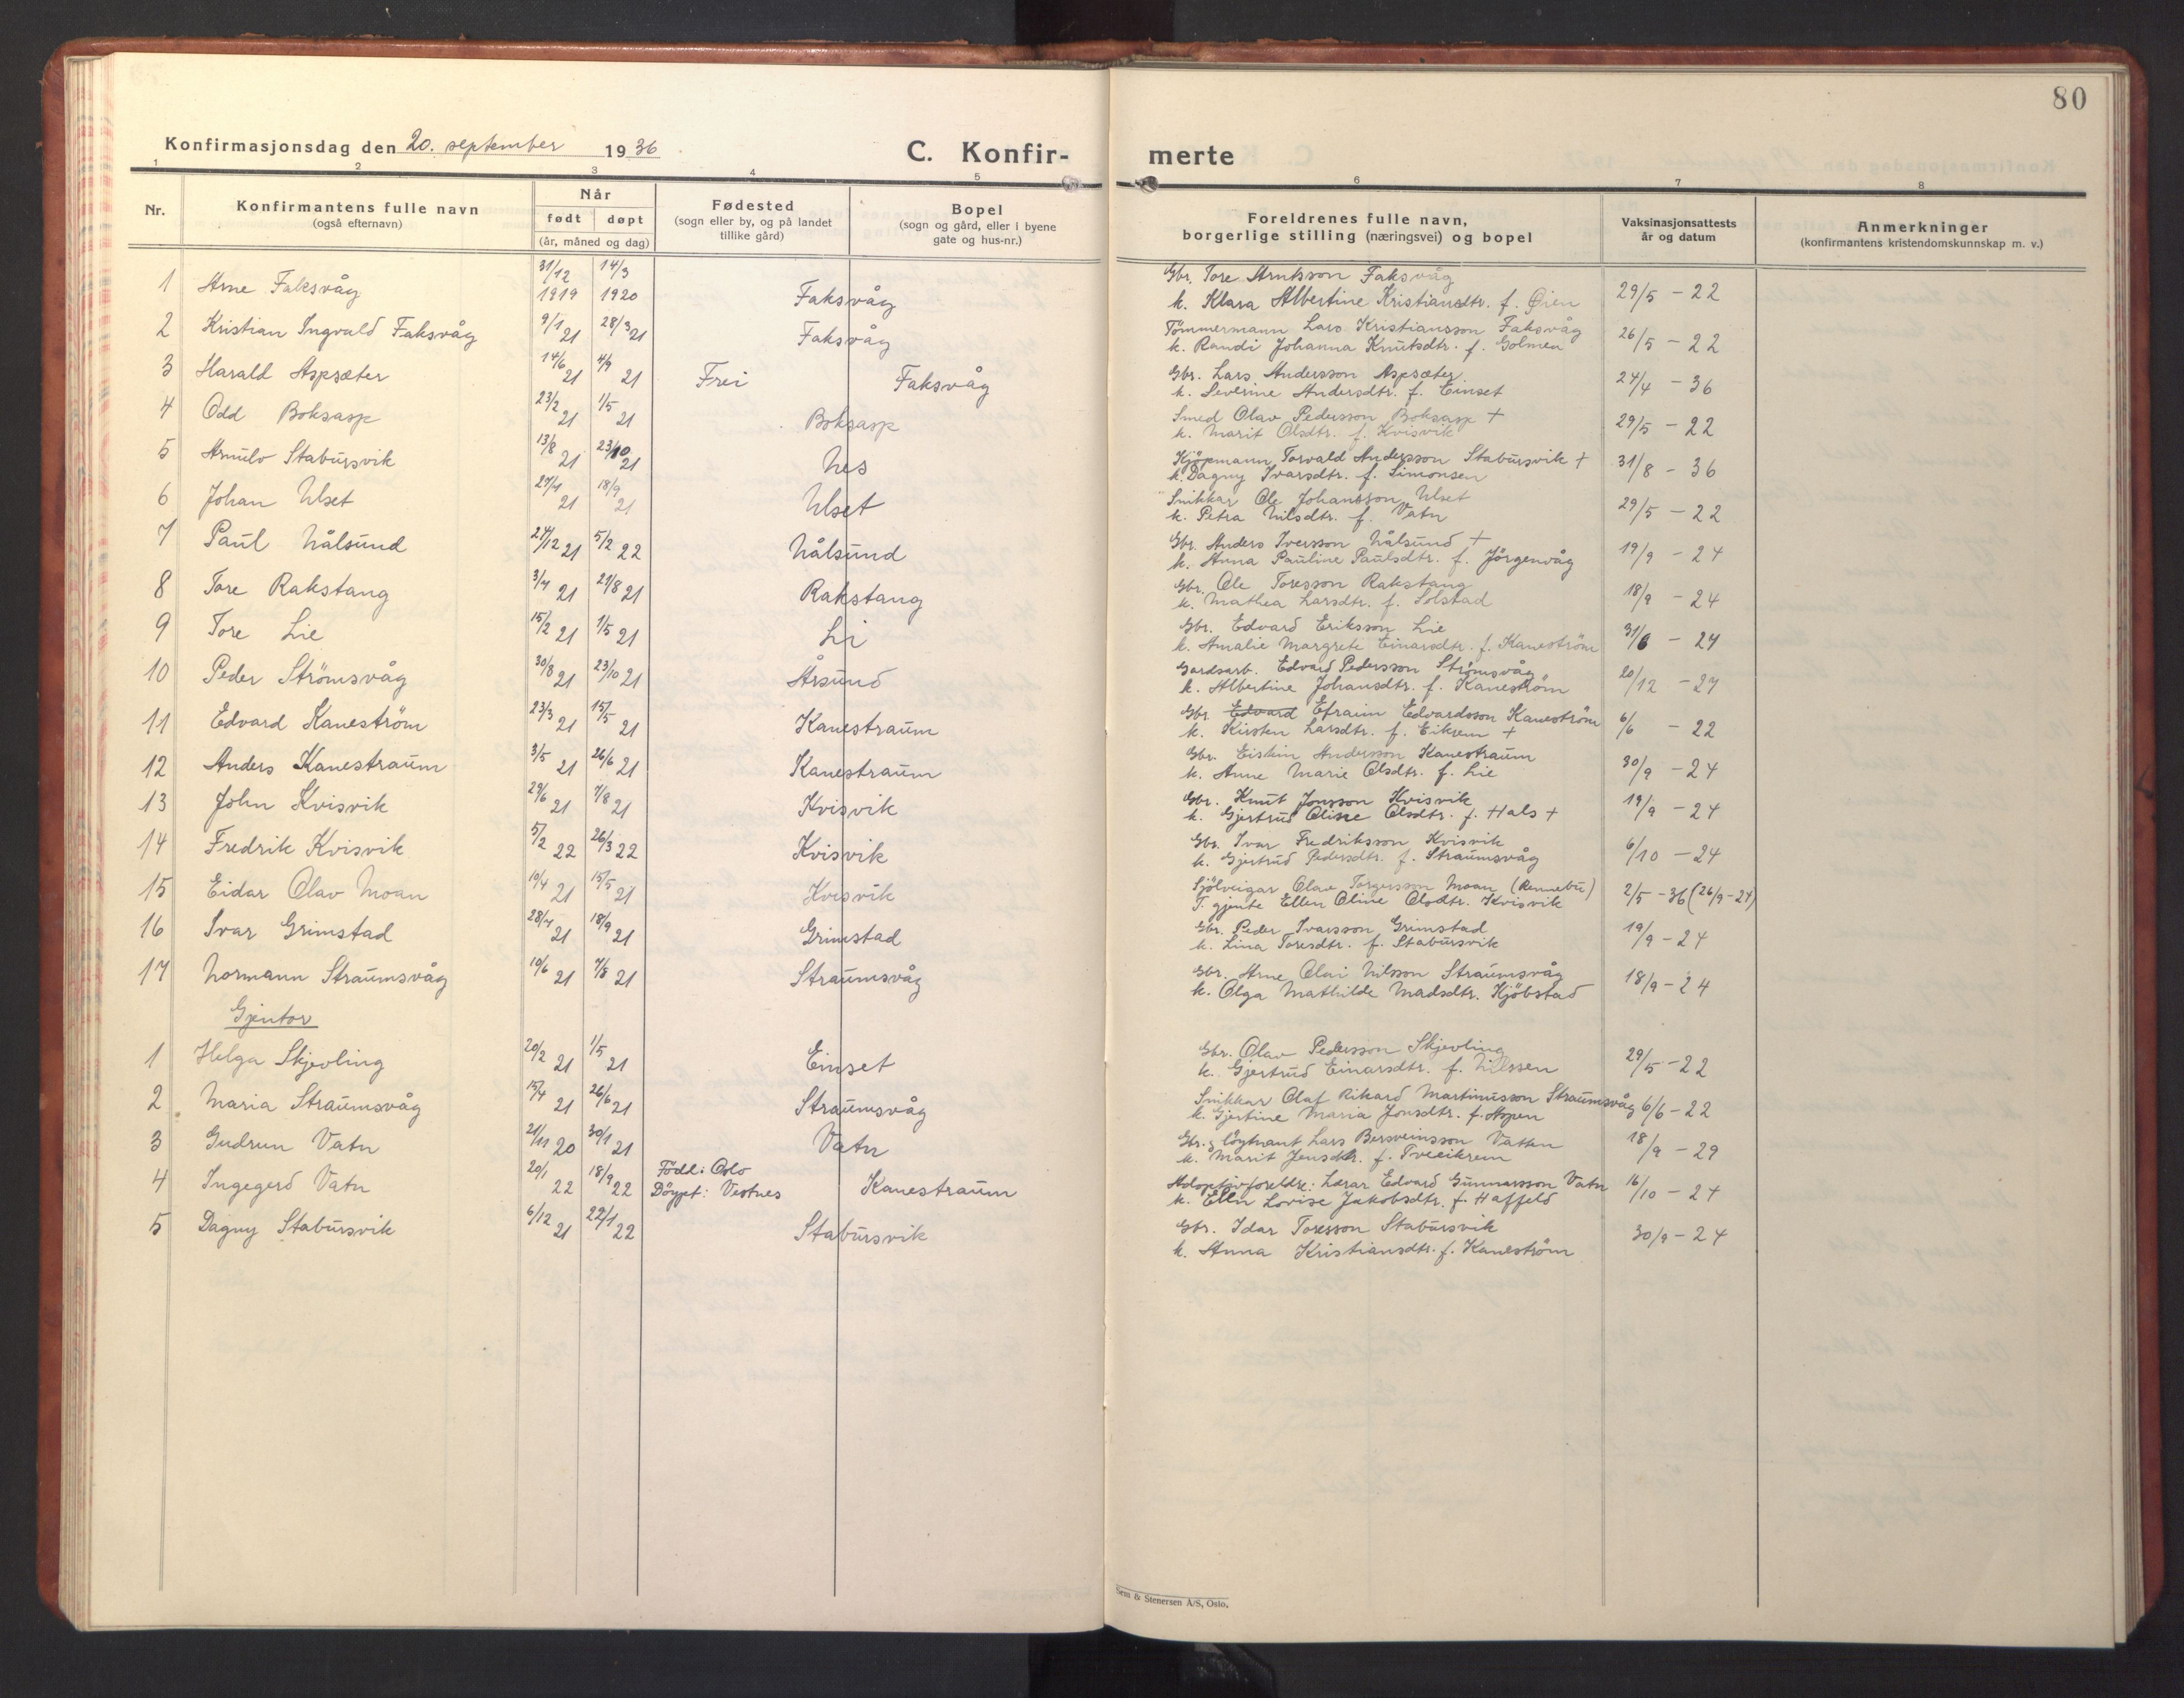 80
Konfirmasjonsdag den 20. september 1936
C. Konfir-
merte
1 2 3 4 5 6 7 8
Nr.
Konfirmantens fulle navn
(også efternavn)
Når
født døpt
(år, måned og dag)
Fødested
(sogn eller by, og på landet
tillike gård)
Bopel
(sogn og gård, eller i byene
gate og hus-nr.)
Foreldrenes fulle navn,
borgerlige stilling (næringsvei) og bopel
Vaksinasjonsattests
år og datum
Anmerkninger
(konfirmantens kristendomskunnskap m. v.)
1 Arne Faksvåg 31/12 1919 14/3 1920 Faksvåg
Gbr. Tore Arntsson Faksvåg
k. Klara Albertine Kristiansdtr. f. Øien 29/5 - 22
2 Kristian Ingvald Faksvåg 9/1 21 28/3 21 Faksvåg
Tömmermann Lars Kristiansson Faksvåg
k. Randi Johanna Knutsdtr. f. Golmen 26/5 - 22
3 Harald Aspsæter 14/6 21 4/9 21 Frei Faksvåg
Gbr. Lars Andersson Aspsæter
k. Severine Andersdtr. f. Einset 24/4 - 36
4 Odd Boksasp 23/2 21 1/5 21 Boksasp
Smed Olav Pedersson Boksasp +
k. Marit Olsdtr. f. Kvisvik 29/5 - 22
5 Arnulv Stabursvik 13/8 21 23/10 21 Nes
Kjöpmann Torvald Andersson Stabursvik +
k. Dagny Ivarsdtr. f. Simonsen 31/8 - 36
6 Johan Ulset 27/4 21 18/9 21 Ulset
Snikkar Ole Johansson Ulset
k. Petra Nilsdtr. f. Vatn 29/5 - 22
7 Paul Nålsund 27/12 21 5/2 22 Nålsund
Gbr. Anders Iversson Nålsund +
k. Anna Pauline Paulsdtr. f. Jörgenvåg 19/9 - 24
8 Tore Rakstang 3/7 21 21/8 21 Rakstang
Gbr. Ole Toresson Rakstang
k. Mathea Larsdtr. f. Solstad 18/9 - 24
9 Tore Lie 15/2 21 1/5 21 Li
Gbr. Edvard Eriksson Lie
k. Amalie Margrete Einarsdtr. f. Kaneström 31/8 - 24
10 Peder Strömsvåg 30/8 21 23/10 21 Årsund
Gardsarb. Edvard Pedersson Strömsvåg
k. Albertine Johansdtr. f. Kaneström 20/12 - 27
11 Edvard Kaneström 23/3 21 15/5 21 Kanestraum
Gbr. Edvard Efraim Edvardsson Kaneström
k. Kirsten Larsdtr. f. Eikrem + 6/6 - 22
12 Anders Kanestraum 3/5 21 26/6 21 Kanestraum
Gbr. Eistein Andersson Kanestraum
k. Anne Marie Olsdtr. f. Lie 30/9 - 24
13 John Kvisvik 29/6 21 7/8 21 Kvisvik
Gbr. Knut Jonsson Kvisvik
k. Gjertrud Oline Olsdtr. f. Hals + 19/9 - 24
14 Fredrik Kvisvik 5/2 22 26/3 22 Kvisvik
Gbr. Ivar Fredriksson Kvisvik
k. Gjertrud Pedersdtr. f. Straumsvåg 6/10 - 24
15 Eidar Olav Moan 10/4 21 15/5 21 Kvisvik
Sjölveigar Olav Torgersson Moan (Rennebu)
T. gjente Ellen Oline Olsdtr. Kvisvik 2/5 - 36 (26/9 - 24)
16 Ivar Grimstad 28/7 21 18/9 21 Grimstad
Gbr. Peder Ivarsson Grimstad
k. Lina Toresdtr. f. Stabursvik 19/9 - 24
17 Normann Straumsvåg 10/6 21 7/8 21 Straumsvåg
Gbr. Arne Olai Nilsson Straumsvåg
k. Olga Mathilde Madsdtr. Kjöbstad 18/9 - 24
Gjentor
1 Helga Skjevling 20/2 21 1/5 21 Einset
Gbr. Olav Pedersson Skjevling
k. Gjertrud Einarsdtr. f. Nilssen 29/5 - 22
2 Maria Straumsvåg 15/4 21 26/6 21 Straumsvåg
Snikkar Olaf Rikard Martinusson Straumsvåg
k. Gjertine Maria Jonsdtr. f. Aspen 6/6 - 22
3 Gudrun Vatn 21/11 20 30/1 21 Vatn
Gbr. & löytnant Lars Bersveinsson Vatten
k. Marit Jensdtr. f. Tveeikrem 18/9 - 29
4 Ingegerd Vatn 20/1 22 18/9 22 Född: Oslo
Döypt: Vestnes Kanestraum
Adoptivforeldre: Lærar Edvard Gunnarsson Vatn
k. Ellen Lovise Jakobsdtr. f. Haffeld 16/10 - 24
5 Dagny Stabursvik 6/12 21 22/1 22 Stabursvik
Gbr. Idar Toresson Stabursvik
k. Anna Kristiansdtr. f. Kaneström 30/9 - 24
Sem & Stenersen A/S, Oslo.